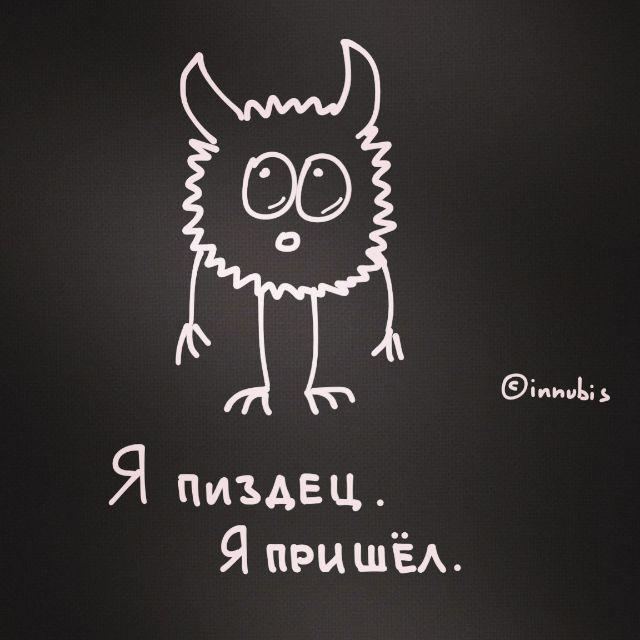 ©innubis
Я пиздец.
Я пришёл.